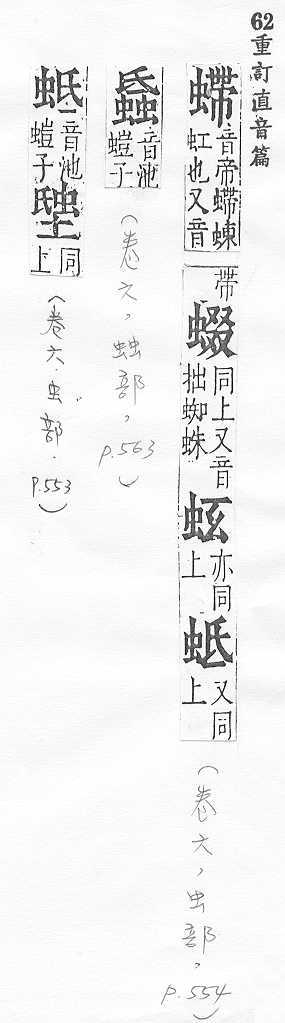 62重訂直音篇
螮音帝螮蝀虹也又音
帶蝃同上又音拙蜘蛛亦同上蚳又同上
(卷六,虫部,p.554)
音池螘子
(卷六,䖵部,p.563)
蚳音池螘子同上
(卷六.虫部.p.553)